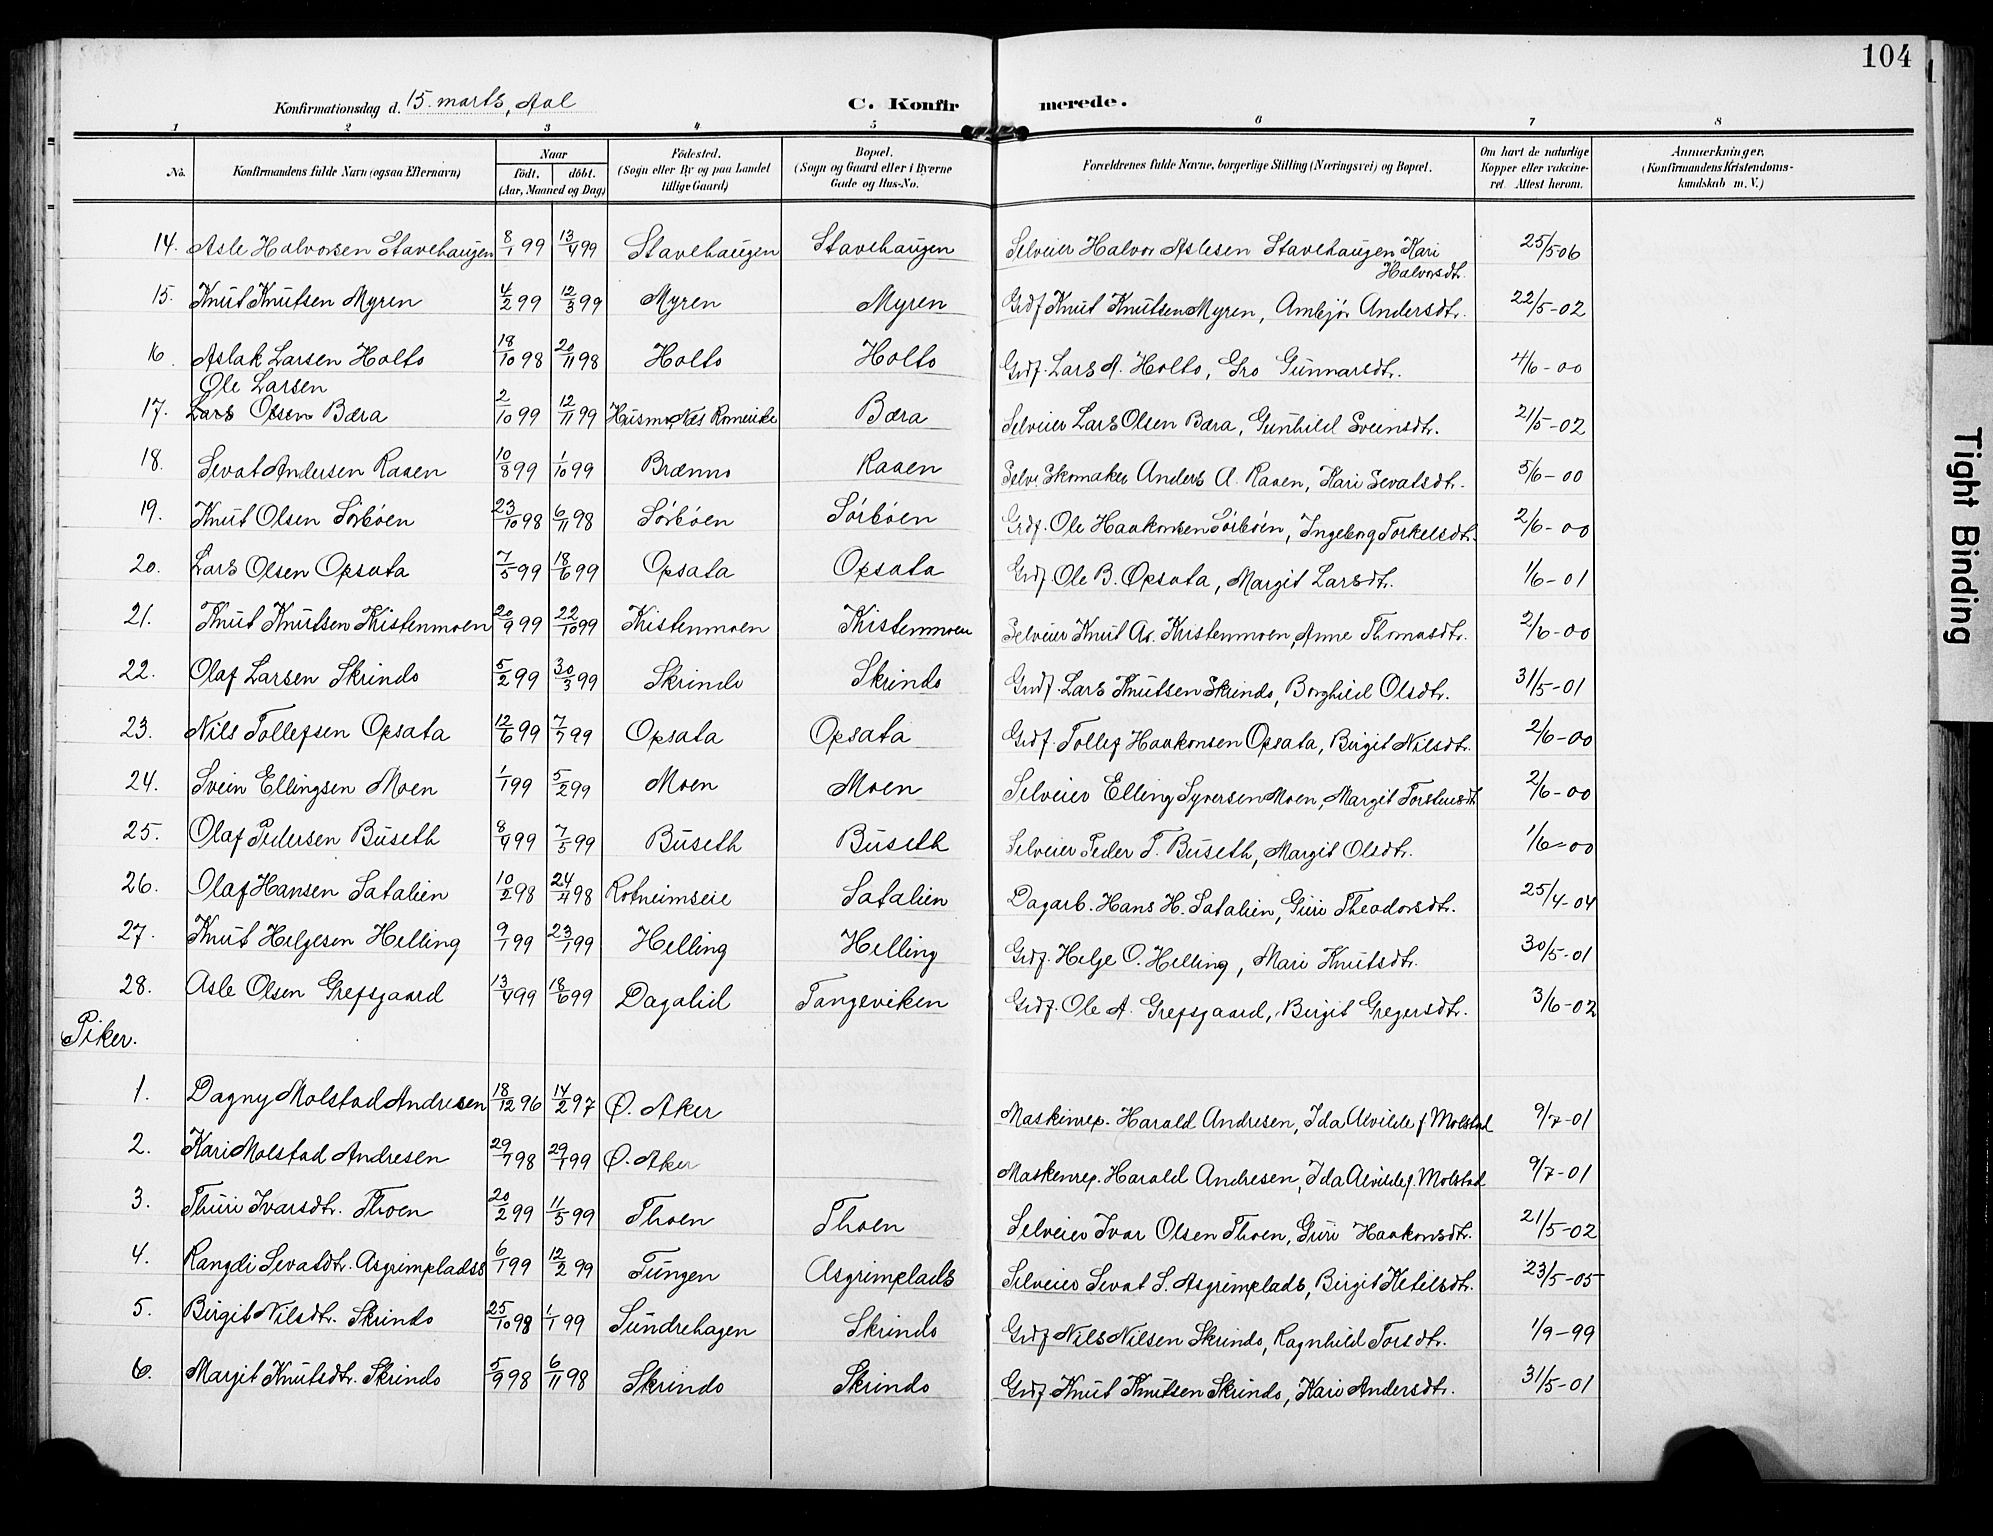 104
Konfirmationsdag d. 15. marts, Aal
C. Konfirmerede.
1 2 3 4 5 6 7 8
No. Konfirmandens fulde Navn (ogsaa Efternavn) Naar født. døbt. (Aar, Maaned og Dag) Fødested. (Sogn eller By og paa Landet tillige Gaard) Bopæl. (Sogn og Gaard eller i Byerne Gade og Hus-No. Forældrenes fulde Navne, borgerlige Stilling (Næringsvei) og Bopæl. Om havt de naturlige Kopper eller vakcineret. Attest herom. Anmærkninger. (Konfirmandens Kristendomskundskab m. V.)
14. Asle Halvorsen Stavehaugen 8/1 99 13/4 99 Stavehaugen Stavehaugen Selveier Halvor Aslesen Stavehaugen Kari Halvorsdtr. 25/5-06
15. Knut Knutsen Myren 4/2 99 12/3 99 Myren Myren Grdf Knut Knutsen Myren, Ambjør Andersdtr. 22/5-02
16. Aslak Larsen Holto 18/10 98 20/11 98 Holto Holto Grdf. Lars A. Holto, Gro Gunnarsdtr. 4/6-00
Ole Larsen
17. Lars Olsen Bæra 2/10 99 12/11 99 Husmo Nes Romerike Bæra Selveier Lars Olsen Bæra, Gunhild Sveinsdtr. 21/5-02
18. Sevat Andersen Raaen 10/8 99 1/10 99 Brænno Raaen Selve. Skomaker Anders A. Raaen, Kari Sevatsdtr. 5/6-00
19. Knut Olsen Sørbøen 23/10 98 6/11 98 Sørbøen Sørbøen Grdf. Ole Haakonsen Sørbøen, Ingeborg Torkelsdtr. 2/6-00
20. Lars Olsen Opsata 7/5 99 18/6 99 Opsata Opsata Grdf Ole B. Opsata, Margit Larsdtr. 1/6-01
21. Knut Knutsen Kristenmoen 20/9 99 22/10 99 Kristenmoen Kristenmoen Selveier Knut As. Kristenmoen, Anne Thomasdtr. 2/6-00
22. Olaf Larsen Skrindo 5/2 99 30/3 99 Skrindo Skrindo Grdf. Lars Knutsen Skrindo, Borghild Olsdtr. 31/5-01
23. Nils Tollefsen Opsata 12/6 99 7/7 99 Opsata Opsata Grdf. Tollef Haakonsen Opsata, Birgit Nilsdtr. 2/6-00
24. Svein Ellingsen Moen 1/1 99 5/2 99 Moen Moen Selveier Elling Syversen Moen, Margit Torstensdtr 2/6-00
25. Olaf Pedersen Buseth 8/4 99 7/5 99 Buseth Buseth Selveier Peder T. Buseth, Margit Olsdtr. 1/6-00
26. Olaf Hansen Satalien 10/2 98 24/4 98 Rotneimseie Satalien Dagarb. Hans H. Satalien, Guri Theodorsdtr. 25/4-04
27. Knut Helgesen Helling 9/1 99 23/1 99 Helling Helling Grdf. Helge O. Helling, Mari Knutsdtr. 30/5-01
28. Asle Olsen Grefsgaard 13/4 99 18/6 99 Dagalid Tangeviken Grdf. Ole A. Grefsgaard, Birgit Gregersdtr. 3/6-02
Piker.
1. Dagny Molstad Andresen 18/12 96 14/2 97 Ø. Aker Maskinrep. Harald Andresen, Ida Alvilde f Molstad 9/7-01
2. Kari Molstad Andresen 29/7 98 29/1 99 Ø. Aker Maskenrep. Harald Andresen, Ida Alvilde f. Molstad 9/7-01
3. Thuri Ivarsdtr. Thoen 20/2 99 11/5 99 Thoen Thoen Selveier Ivar Olsen Thoen, Guri Haakonsdtr. 21/5-02
4. Rangdi Sevatdtr. Asgrimpladss 6/1 99 12/2 99 Tungen Asgrimplads Selveier Sevat S. Asgrimplads, Birgit Ketilsdtr. 23/5-05
5. Birgit Nilsdtr. Skrindo 25/10 98 1/1 99 Sundrehagen Skrindo Grdf Nils Nilsen Skrindo, Ragnhild Torsdtr. 1/9-99
6. Margit Knutsdtr. Skrindo 5/9 98 6/11 98 Skrindo Skrindo Grdf Knut Knutsen Skrindo, Kari Andersdtr. 31/5-01
Tight Binding